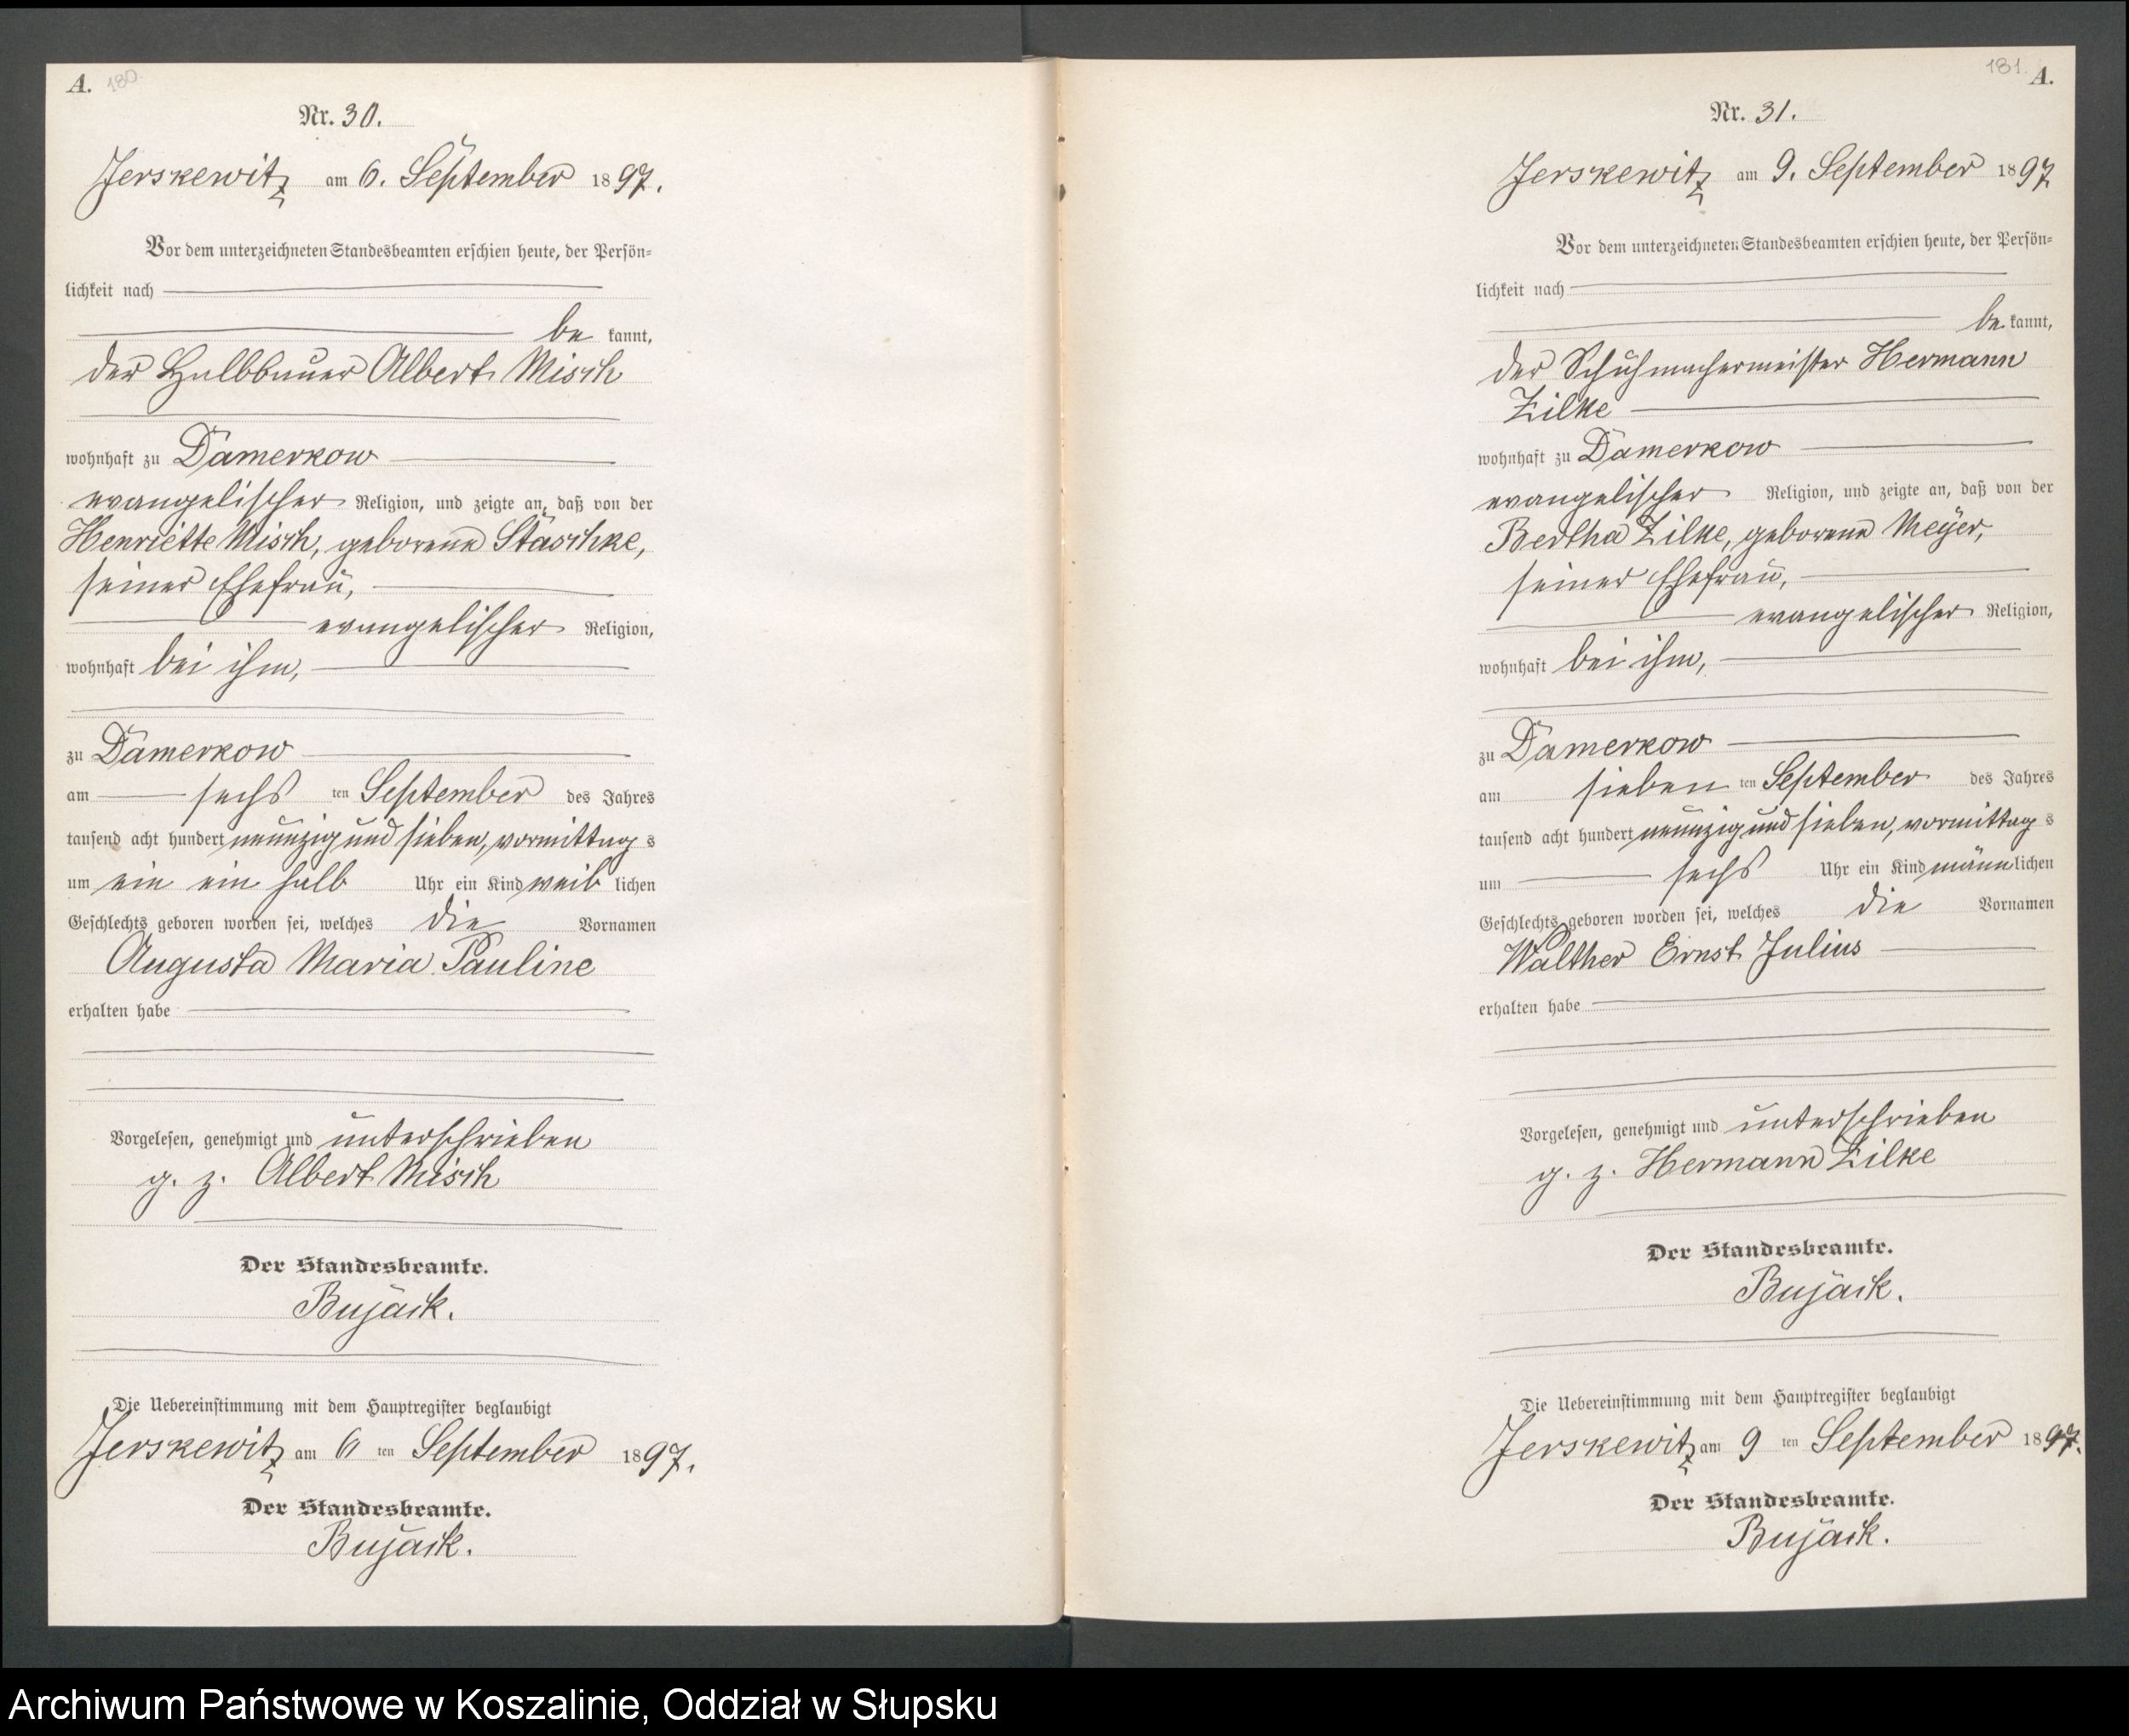 A. 180.
Nr. 30.
Jerskewitz am 6. September 1897.
Vor dem unterzeichneten Standesbeamten erschien heute, der Persön-
lichkeit nach
be kannt,
der Halbbauer Albert Misch
wohnhaft zu Damerkow
evangelischer Religion, und zeigte an, daß von der
Henriette Misch, geborene Staschke,
seiner Ehefrau,
evangelischer Religion,
wohnhaft bei ihm,
zu Damerkow
am sechs ten September des Jahres
tausend acht hundert neunzig und sieben, vormittag s
um ein ein halb Uhr ein Kind weib lichen
Geschlechts geboren worden sei, welches die Vornamen
Augusta Maria Pauline
erhalten habe
Vorgelesen, genehmigt und unterschrieben
g. z. Albert Misch
Der Standesbeamte.
Bujack.
Die Uebereinstimmung mit dem Hauptregister beglaubigt
Jerskewitz am 6 ten September 1897.
Der Standesbeamte.
Bujack.
181. A.
Nr. 31.
Jerskewitz am 9. September 1897
Vor dem unterzeichneten Standesbeamten erschien heute, der Persön-
lichkeit nach
be kannt,
der Schuhmachermeister Hermann
Zilke
wohnhaft zu Damerkow
evangelischer Religion, und zeigte an, daß von der
Bertha Zilke, geborene Meyer,
seiner Ehefrau,
evangelischer Religion,
wohnhaft bei ihm,
zu Damerkow
am sieben ten September des Jahres
tausend acht hundert neunzig und sieben, vormittag s
um sechs Uhr ein Kind männ lichen
Geschlechts geboren worden sei, welches die Vornamen
Walther Ernst Julius
erhalten habe
Vorgelesen, genehmigt und unterschrieben
g. z. Hermann Zilke
Der Standesbeamte.
Bujack.
Die Uebereinstimmung mit dem Hauptregister beglaubigt
Jerskewitz am 9 ten September 1897.
Der Standesbeamte.
Bujack.
Archiwum Państwowe w Koszalinie, Oddział w Słupsku